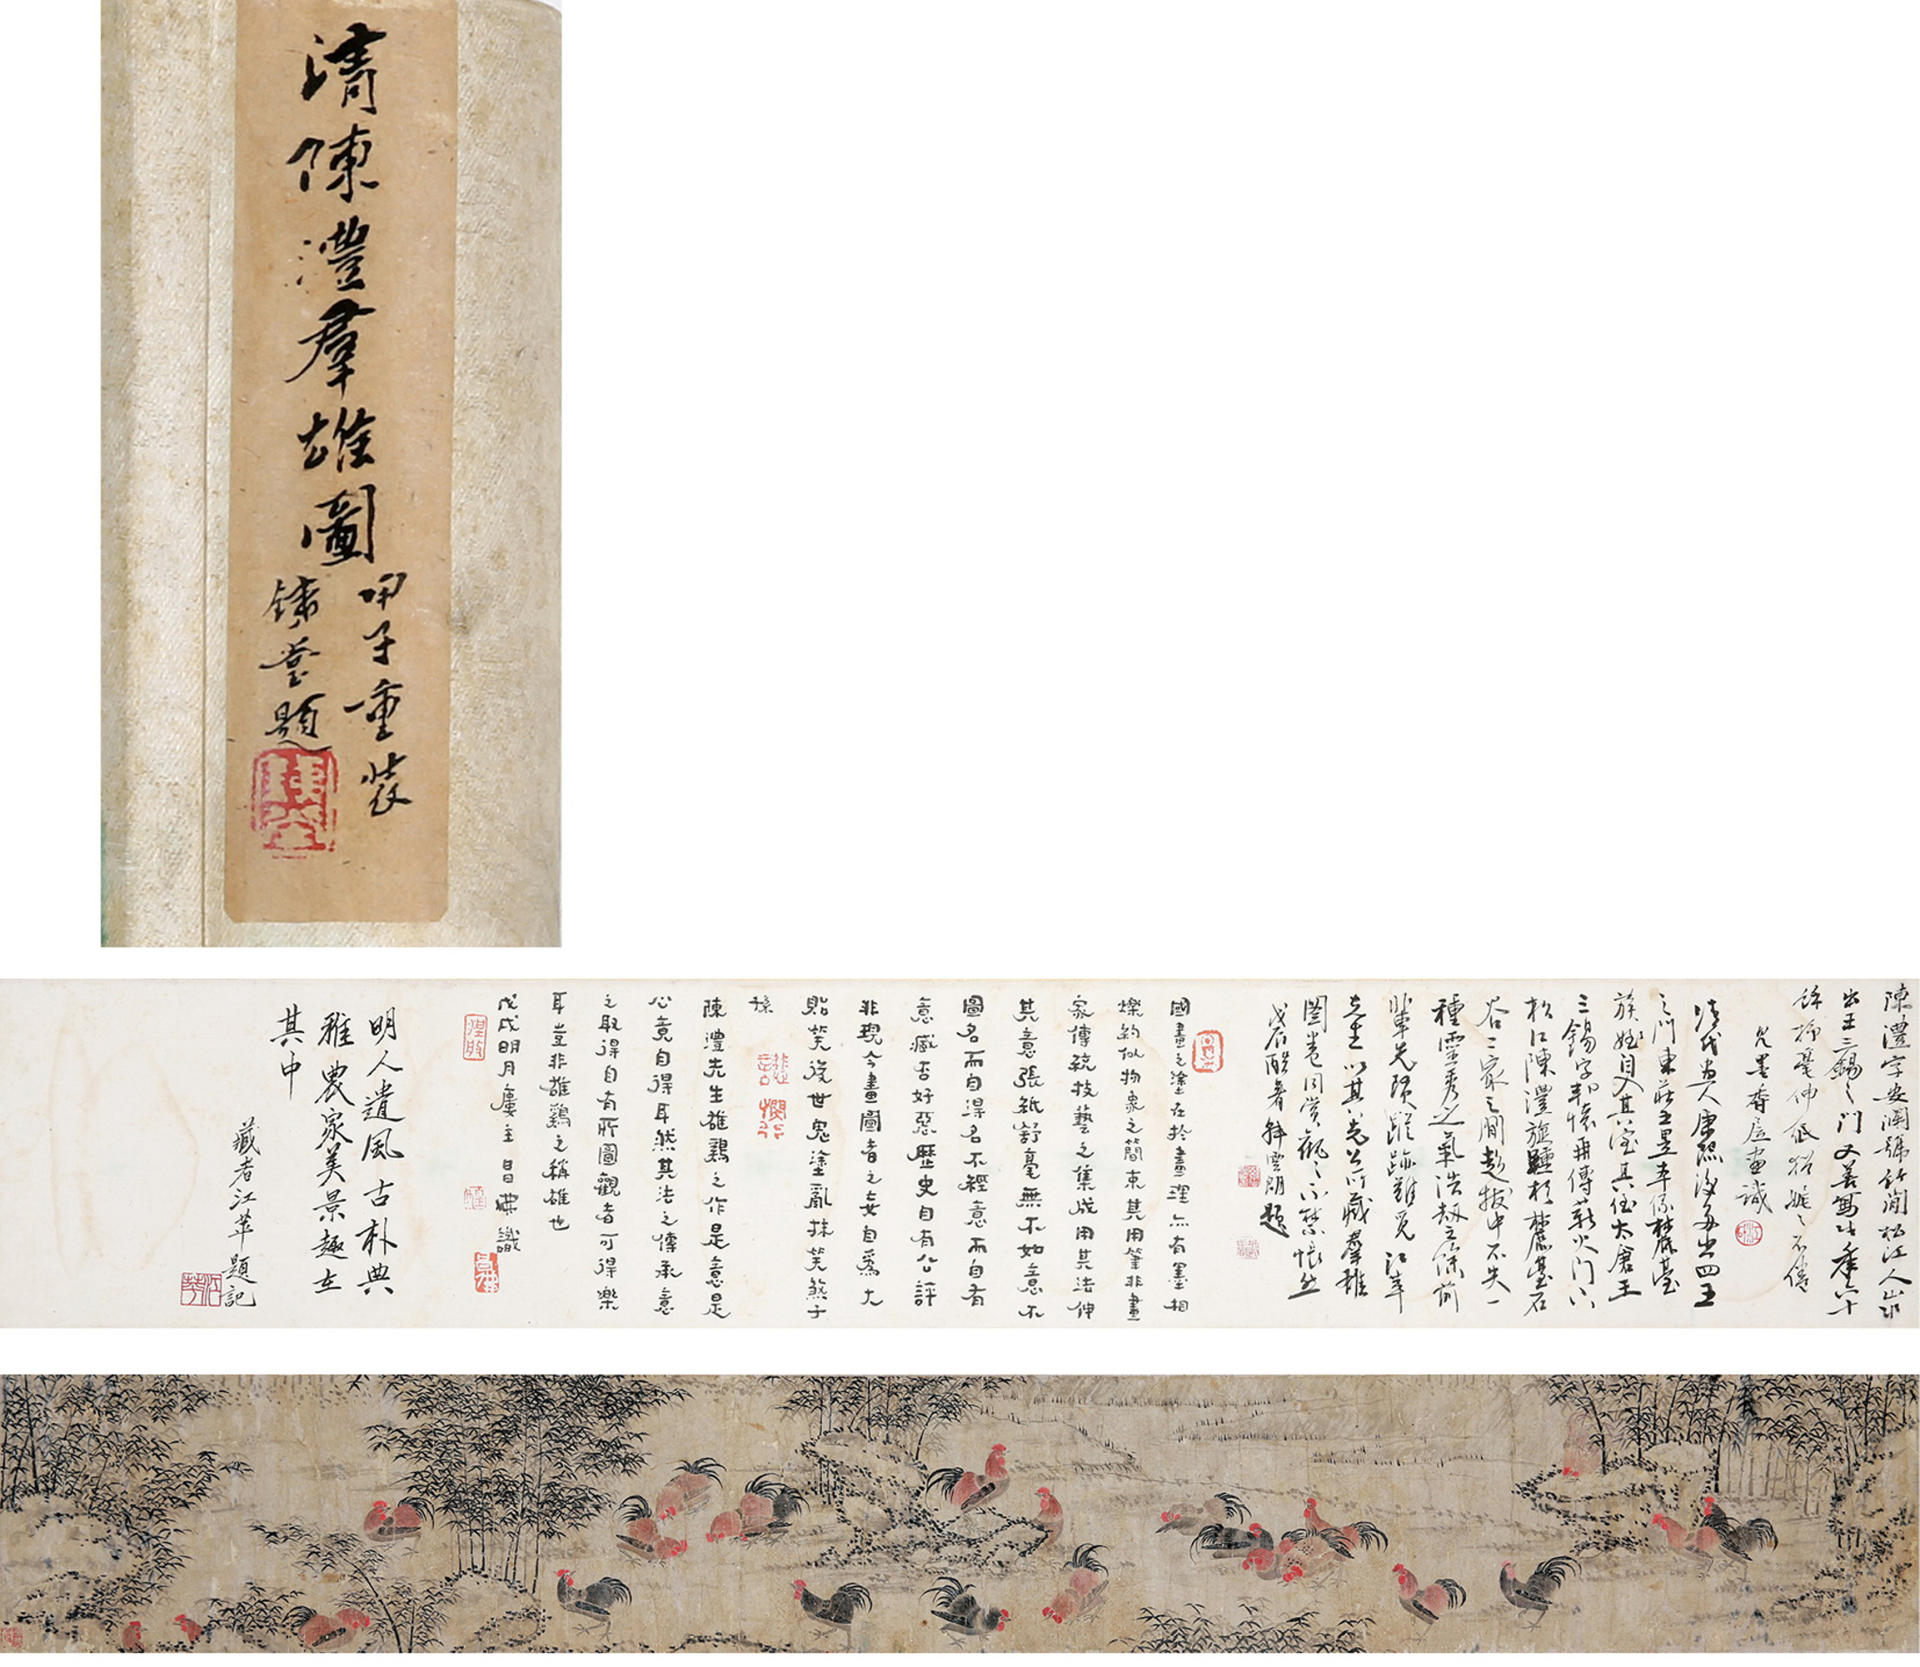 清陳澧羣雄圖
甲子重裝
鐵崖題
陳澧字安瀾號竹間松江人山水
出王三錫之門又善寫生年六十
餘揮毫伸紙猶娓娓不倦
墨香居畫識
清代畫人康熙後多出四王
之門東莊王昱本係麓臺
族姪自入其室其侄太倉王
三錫字邦懷再傳薪火門下
松江陳澧旋踵於麓臺石
谷二家之間起拔中不失一
種靈秀之氣浩劫之餘前
輩先頭蹤跡難覓江峯
先生以其先公所藏羣雄
圖卷同賞觀之不禁悵然
戊辰酷暑 題
國畫之塗在於畫理六有墨相
燦約似物象之簡束其用筆非畫
家傳統技藝之集成用其法伸
其意張紙舒毫無不如意不
圖名而自得名不經意而自有
意臧否好惡歷史自有公評
非現今畫圖者之妄自為大
貽笑後世鬼塗亂抹笑煞子
孫
陳澧先生雄鷄之作是意是
心竟自得耳然其法之傳承意
之取得自有所圖觀者可得樂
耳豈非雄鷄之稱雄也
戊戌明月廔主 識
明人遺風古朴典
雅農家美景趣在
其中
藏者江 題記